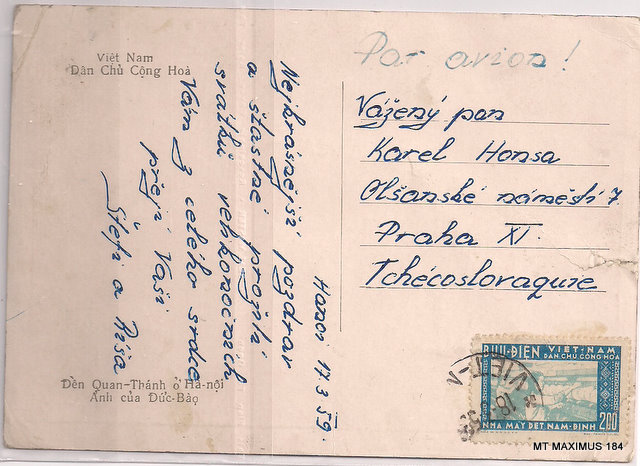 Việt Nam
Dân Chủ Cộng Hoà
Hanoi 17.3.59.
Nejkrásnější pozdrav
a šťastné prožití
svátků velikonočních
Vám z celého srdce
přejí Vaši
Štefi a Ríša
Đền Quan-Thánh ở Hà-nội
Ảnh của Đức-Bảo
Par avion!
Vážený pan
Karel Honsa
Olšanské náměstí 7
Praha XI.
Tchécoslovaquie
BƯU-ĐIỆN VIỆT-NAM
DÂN CHỦ CỘNG HOÀ
VIET-N
NHÀ MÁY DỆT NAM-ĐỊNH
200
MT MAXIMUS 184